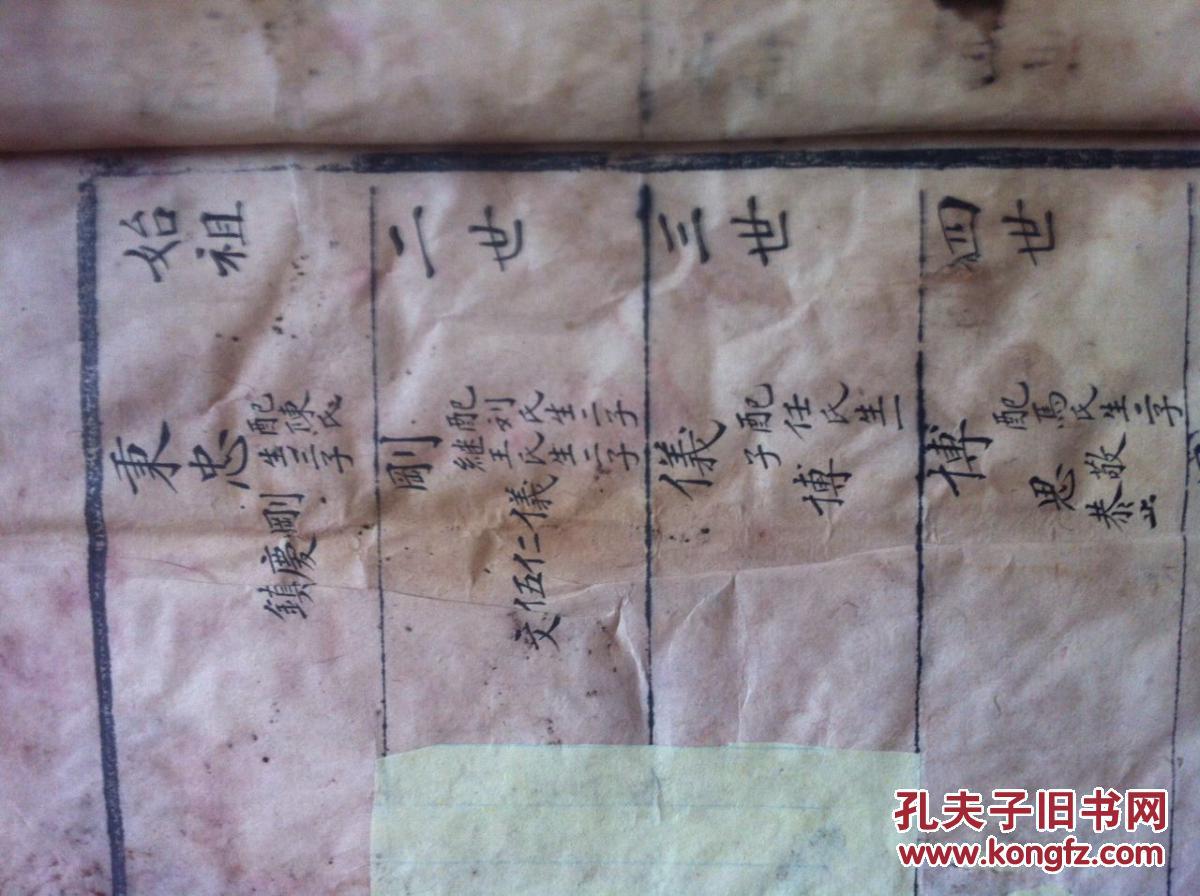 始祖
秉忠
配陳氏
生三子
剛
慶
鎮
二世
剛
配刘氏生二子
継王氏生二子
儀
仁
伍
三世
儀
配任氏生一
子
博
四世
博
配馬氏生二子
思
敬
恭
孔夫子旧书网
www.kongfz.com